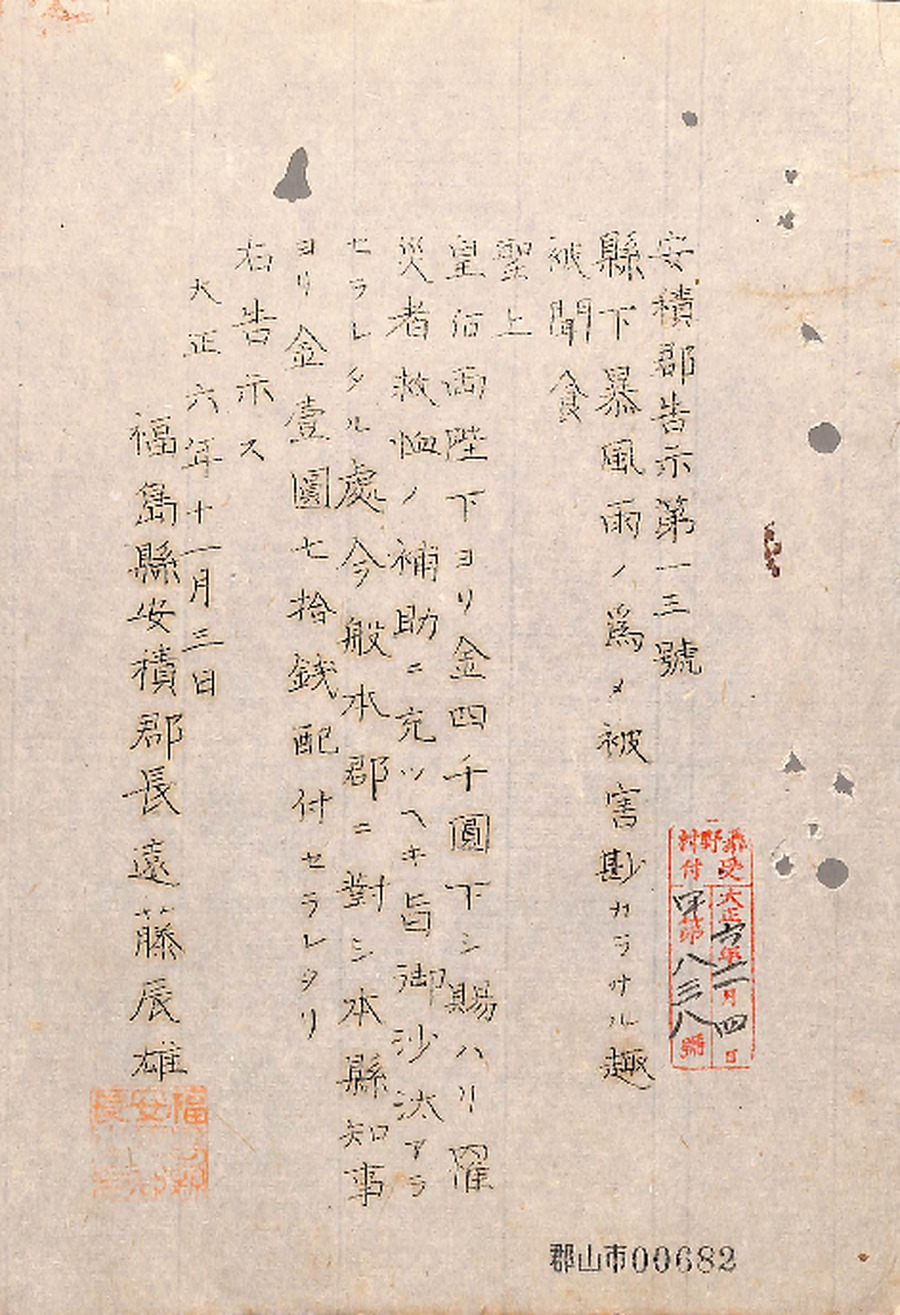 安積郡告示第一三號
縣下暴風雨ノ爲メ被害尠カラサル趣
被聞食
聖上
皇后両陛下ヨリ金四千圓下シ賜ハリ罹
災者救恤ノ補助ニ充ツヘキ旨御沙汰アラ
セラレタル處今般本郡ニ對シ本縣知事
ヨリ金壹圓七拾銭配付セラレタリ
右告示ス
大正六年十一月三日
福島縣安積郡長遠藤辰雄
村野
受付
大正六年十一月四日
甲第八三八號
郡山市00682